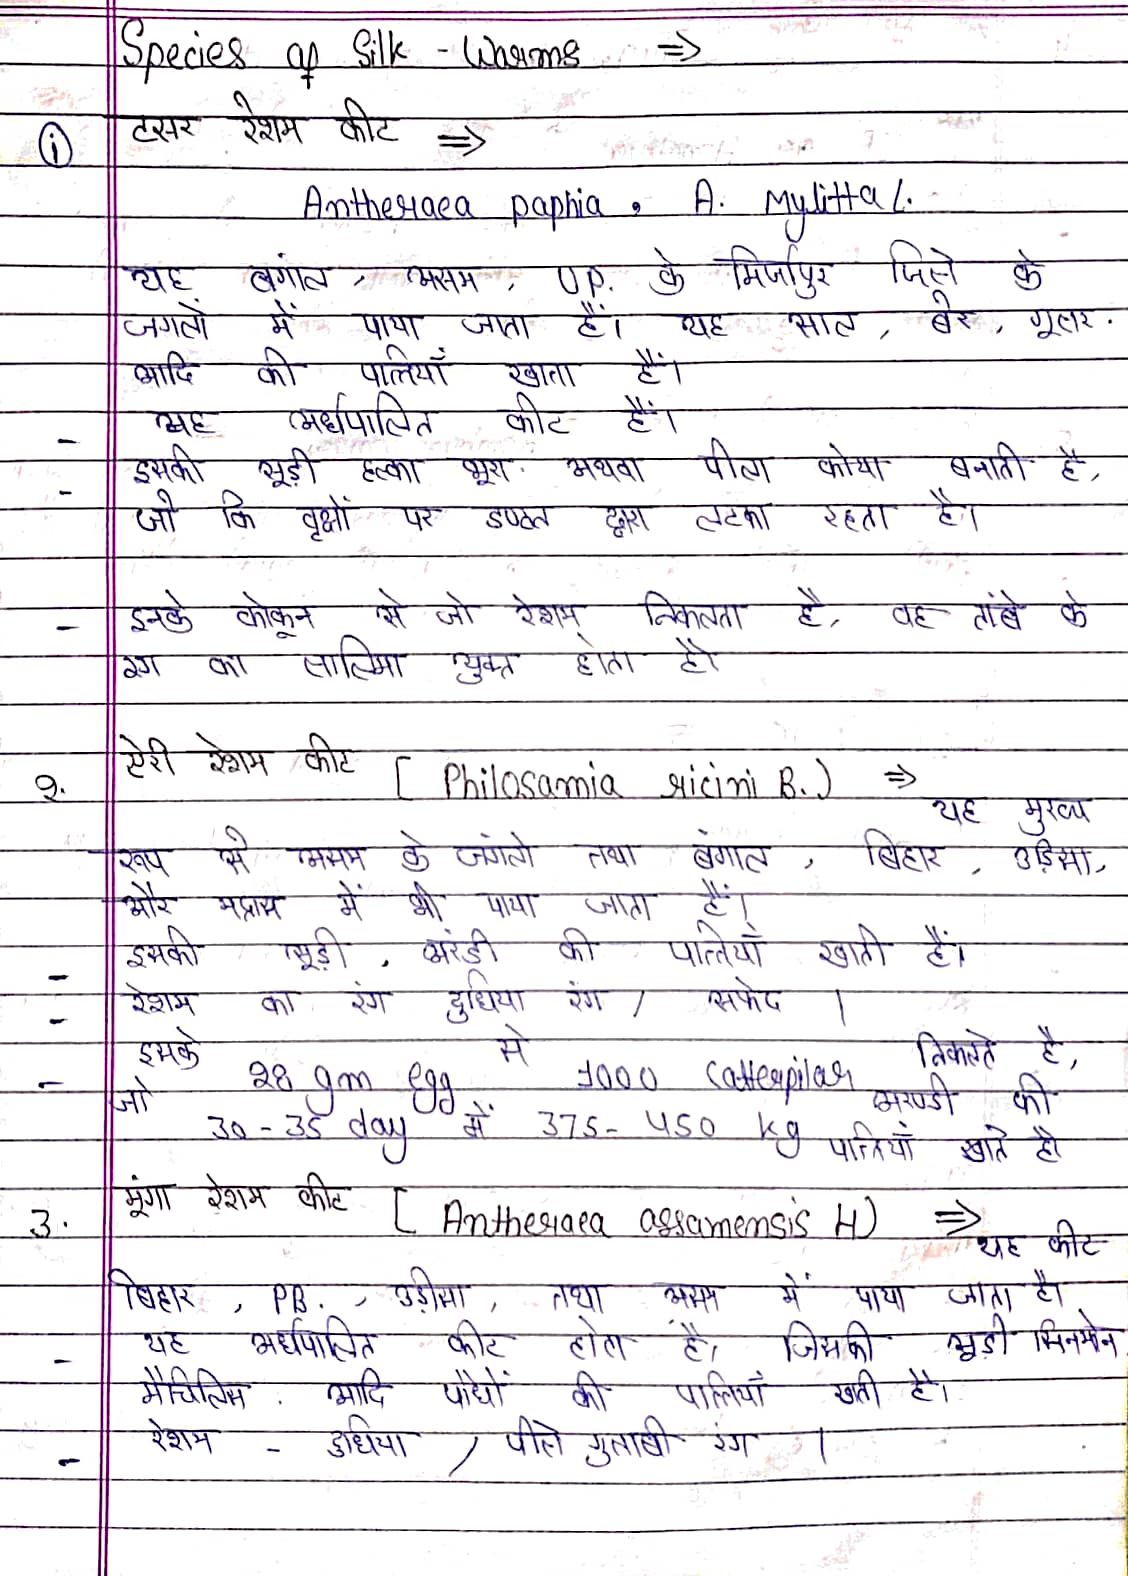 Species of Silk - Warms ⇒
① टसर रेशम कीट ⇒
Antheraea paphia , A. Mylitta L.
यह बगांल , असम , U.P. के मिर्जापुर जिले के
जगलों में पाया जाता हैं। यह साल , बेर , गूलर .
आदि की पत्तियाँ खाता हैं।
- यह अर्धपालित कीट हैं।
- इसकी सूड़ी हल्का भूरा अथवा पीला कोया बनाती है,
जो कि वृक्षों पर डण्ठल द्वारा लटका रहता है।
- इनके कोकून से जो रेशम निकलता है, वह तांबे के
रंग का लालिमा युक्त होता है।
2. ऐरी रेशम कीट [ Philosamia ricini B.) ⇒
यह मुख्य
रूप से असम के जंगलो तथा बंगाल , बिहार , उड़िसा,
और मद्रास में भी पाया जाता हैं।
- इसकी सूड़ी , अरंडी की पत्तियाँ खाती हैं।
- रेशम का रंग दुधिया रंग / सफेद ।
- इसके 28 gm egg से 1000 Catterpilar निकलते है,
जो 30-35 day में 375-450 kg अरण्डी की
पत्तियाँ खाते है।
3. मूंगा रेशम कीट [ Antheraea assamensis H) ⇒
यह कीट
बिहार , P.B. , उड़ीसा , तथा असम में पाया जाता है।
- यह अर्धपालित कीट होता है, जिसकी सूड़ी सिनमोन
मैचिलिस . आदि पौधों की पात्तियाँ खाती है।
- रेशम - दुधिया / पीले गुलाबी रंग ।